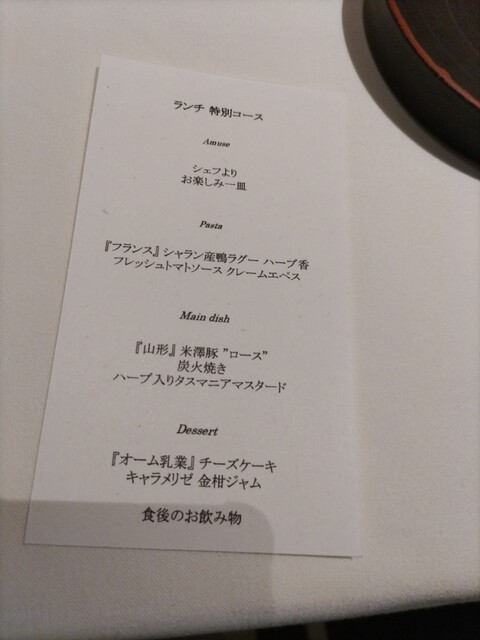 ランチ 特別コース
Amuse
シェフより
お楽しみ一皿
Pasta
『フランス』シャラン産鴨ラグー ハーブ香
フレッシュトマトソース クレームエペス
Main dish
『山形』米澤豚 ”ロース”
炭火焼き
ハーブ入りタスマニアマスタード
Dessert
『オーム乳業』チーズケーキ
キャラメリゼ 金柑ジャム
食後のお飲み物